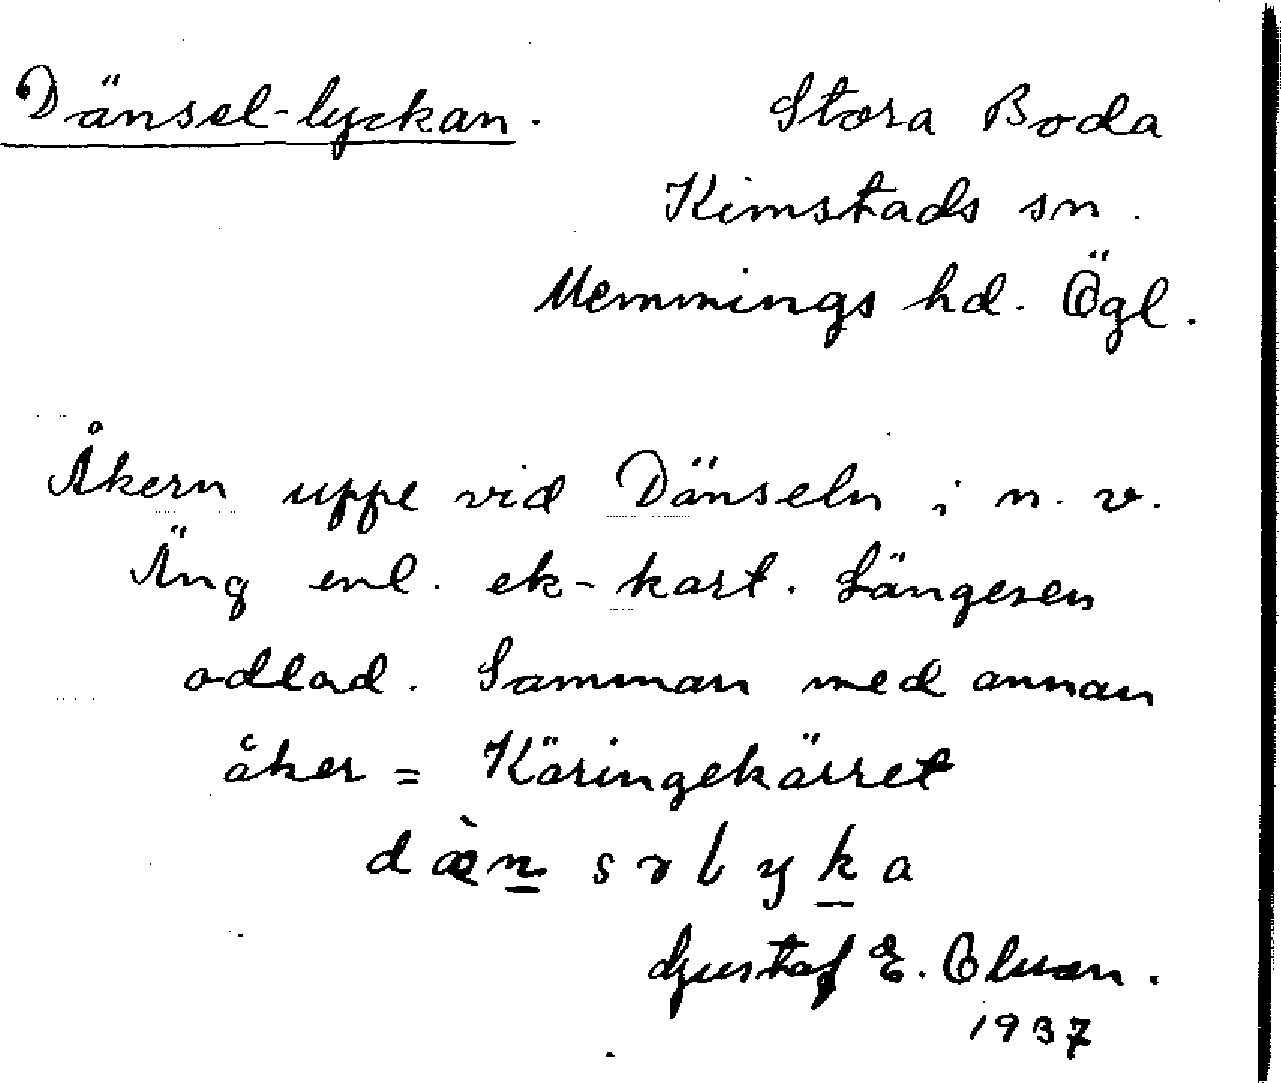 Dänsel-lyckan. Stora Boda
Kimstads sn.
Memmings hd. Ögl.
Åkern uppe vid Dänseln i n. v.
Äng enl. ek-kart. Längesen
odlad. Samman med annan
åker = Käringekärret
dæ̀n̲sɤlyk̲a
Gustaf E. Olson.
1937